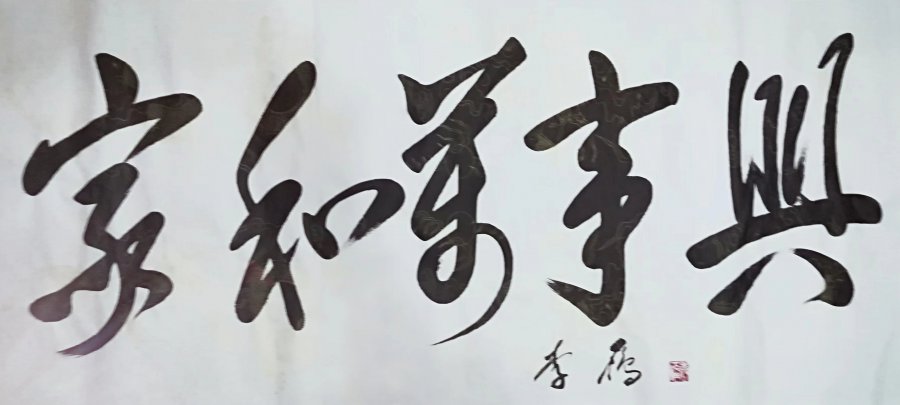 家和萬事興
李鴈